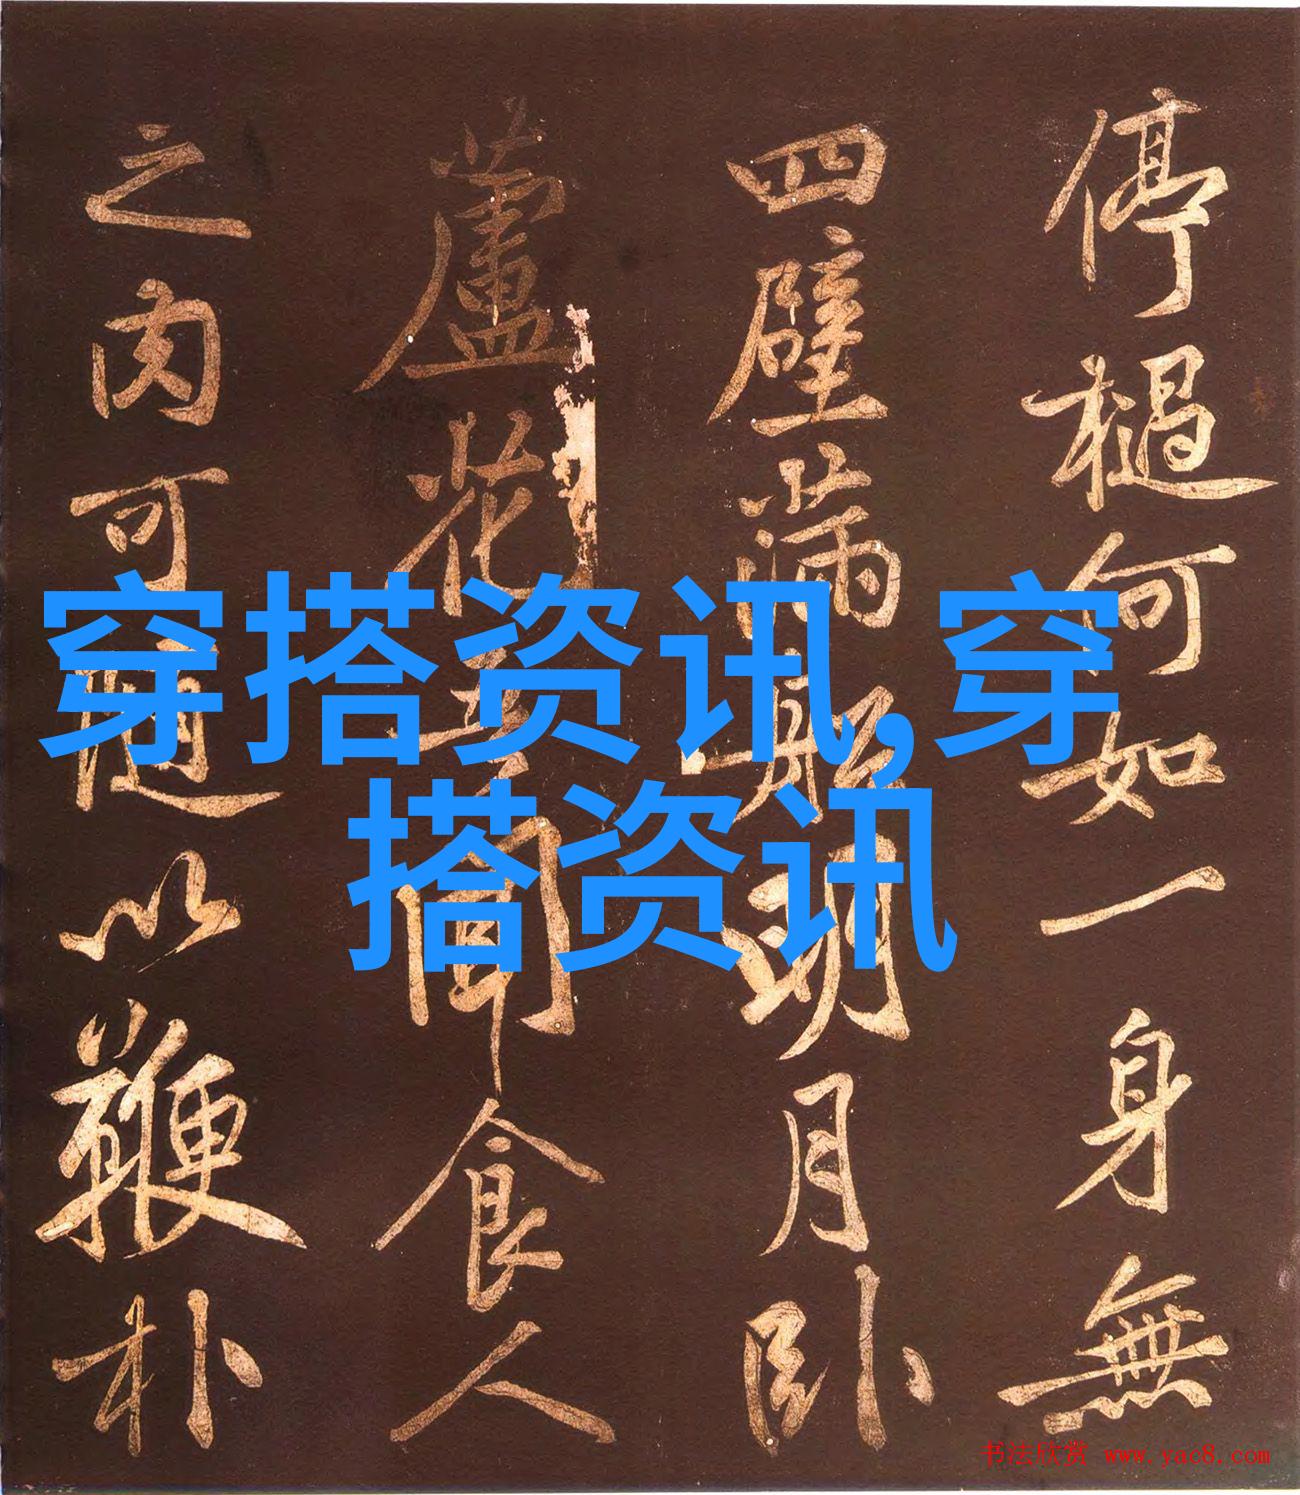 停檛何如一身無
四壁滿船明月卧
蘆花吾聞食人
之肉可隨以鞭朴
穿搭资讯,穿
搭资讯
书法欣赏 www.yac8.com